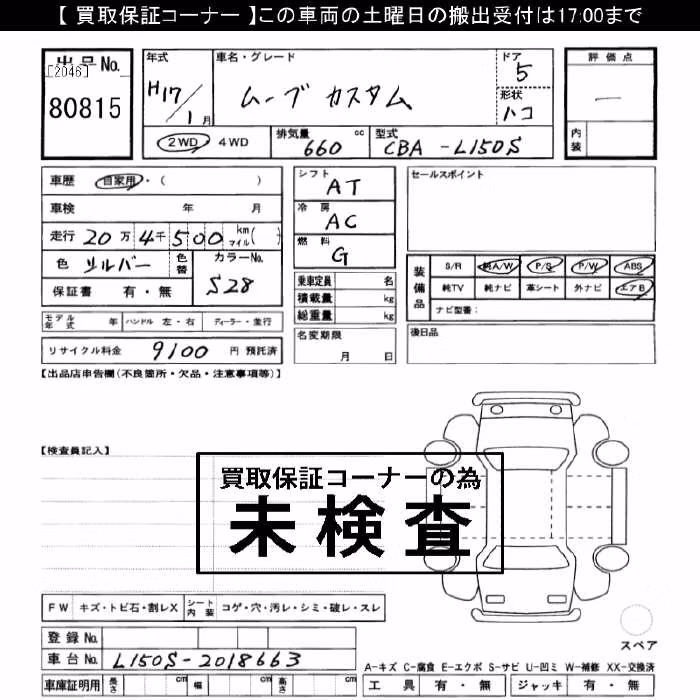 【 買取保証コーナー 】この車両の土曜日の搬出受付は17:00まで
出品No.
[2046]
80815
年式
H17/1月
車名・グレード
ムーブ カスタム
ドア
5
形状
ハコ
評価点
―
内装
2WD・4WD
排気量
660 cc
型式
CBA-L150S
車歴 自家用・( )
車検 年 月
走行 20万4千500 km マイル( )
色 シルバー
色替
カラーNo.
S28
保証書 有・無
モデル年式 年
ハンドル 左・右
ディーラー・並行
リサイクル料金 9100 円 預託済
シフト
AT
冷房
AC
燃料
G
乗車定員 名
積載量 kg
総重量 kg
名変期限
月 日
セールスポイント
装備品
S/R 純A/W P/S P/W ABS
純TV 純ナビ 革シート 外ナビ エアB
ナビ型番:
後日品
【出品店申告欄(不良箇所・欠品・注意事項等)】
【検査員記入】
買取保証コーナーの為
未検査
FW キズ・トビ石・割レX
シート内装 コゲ・穴・汚レ・シミ・破レ・スレ
登録No.
車台No. L150S-2018663
車庫証明用 長さ cm 幅 cm 高さ cm
スペア
A-キズ C-腐食 E-エクボ S-サビ U-凹ミ W-補修 XX-交換済
工具 有・無 ジャッキ 有・無